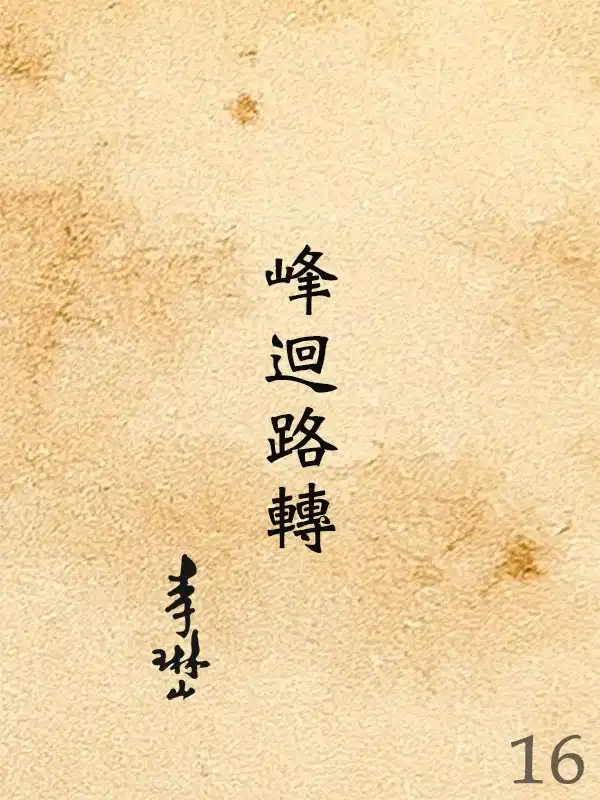 峰迴路轉
李琳山
16